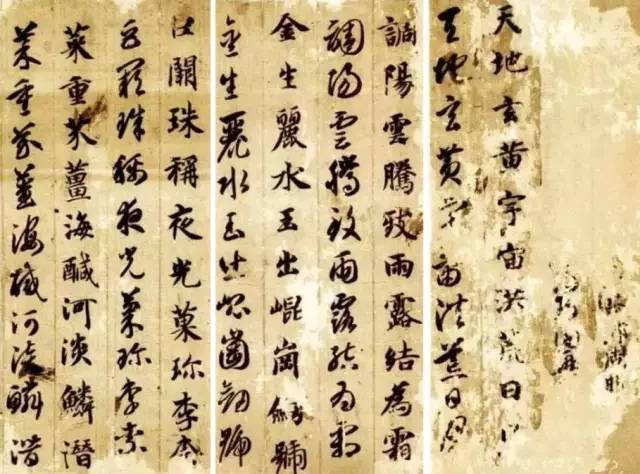 天地玄黄宇宙洪荒日
天地玄黄宇宙洪荒日月
調陽雲騰致雨露結為霜
調陽雲騰致雨露結為霜
金生麗水玉出崐崗劔號
金生麗水玉出崐崗劔號
巨闕珠稱夜光菓珍李柰
巨闕珠稱夜光菓珍李柰
菜重芥薑海醎河淡鱗潛
菜重芥薑海醎河淡鱗潛